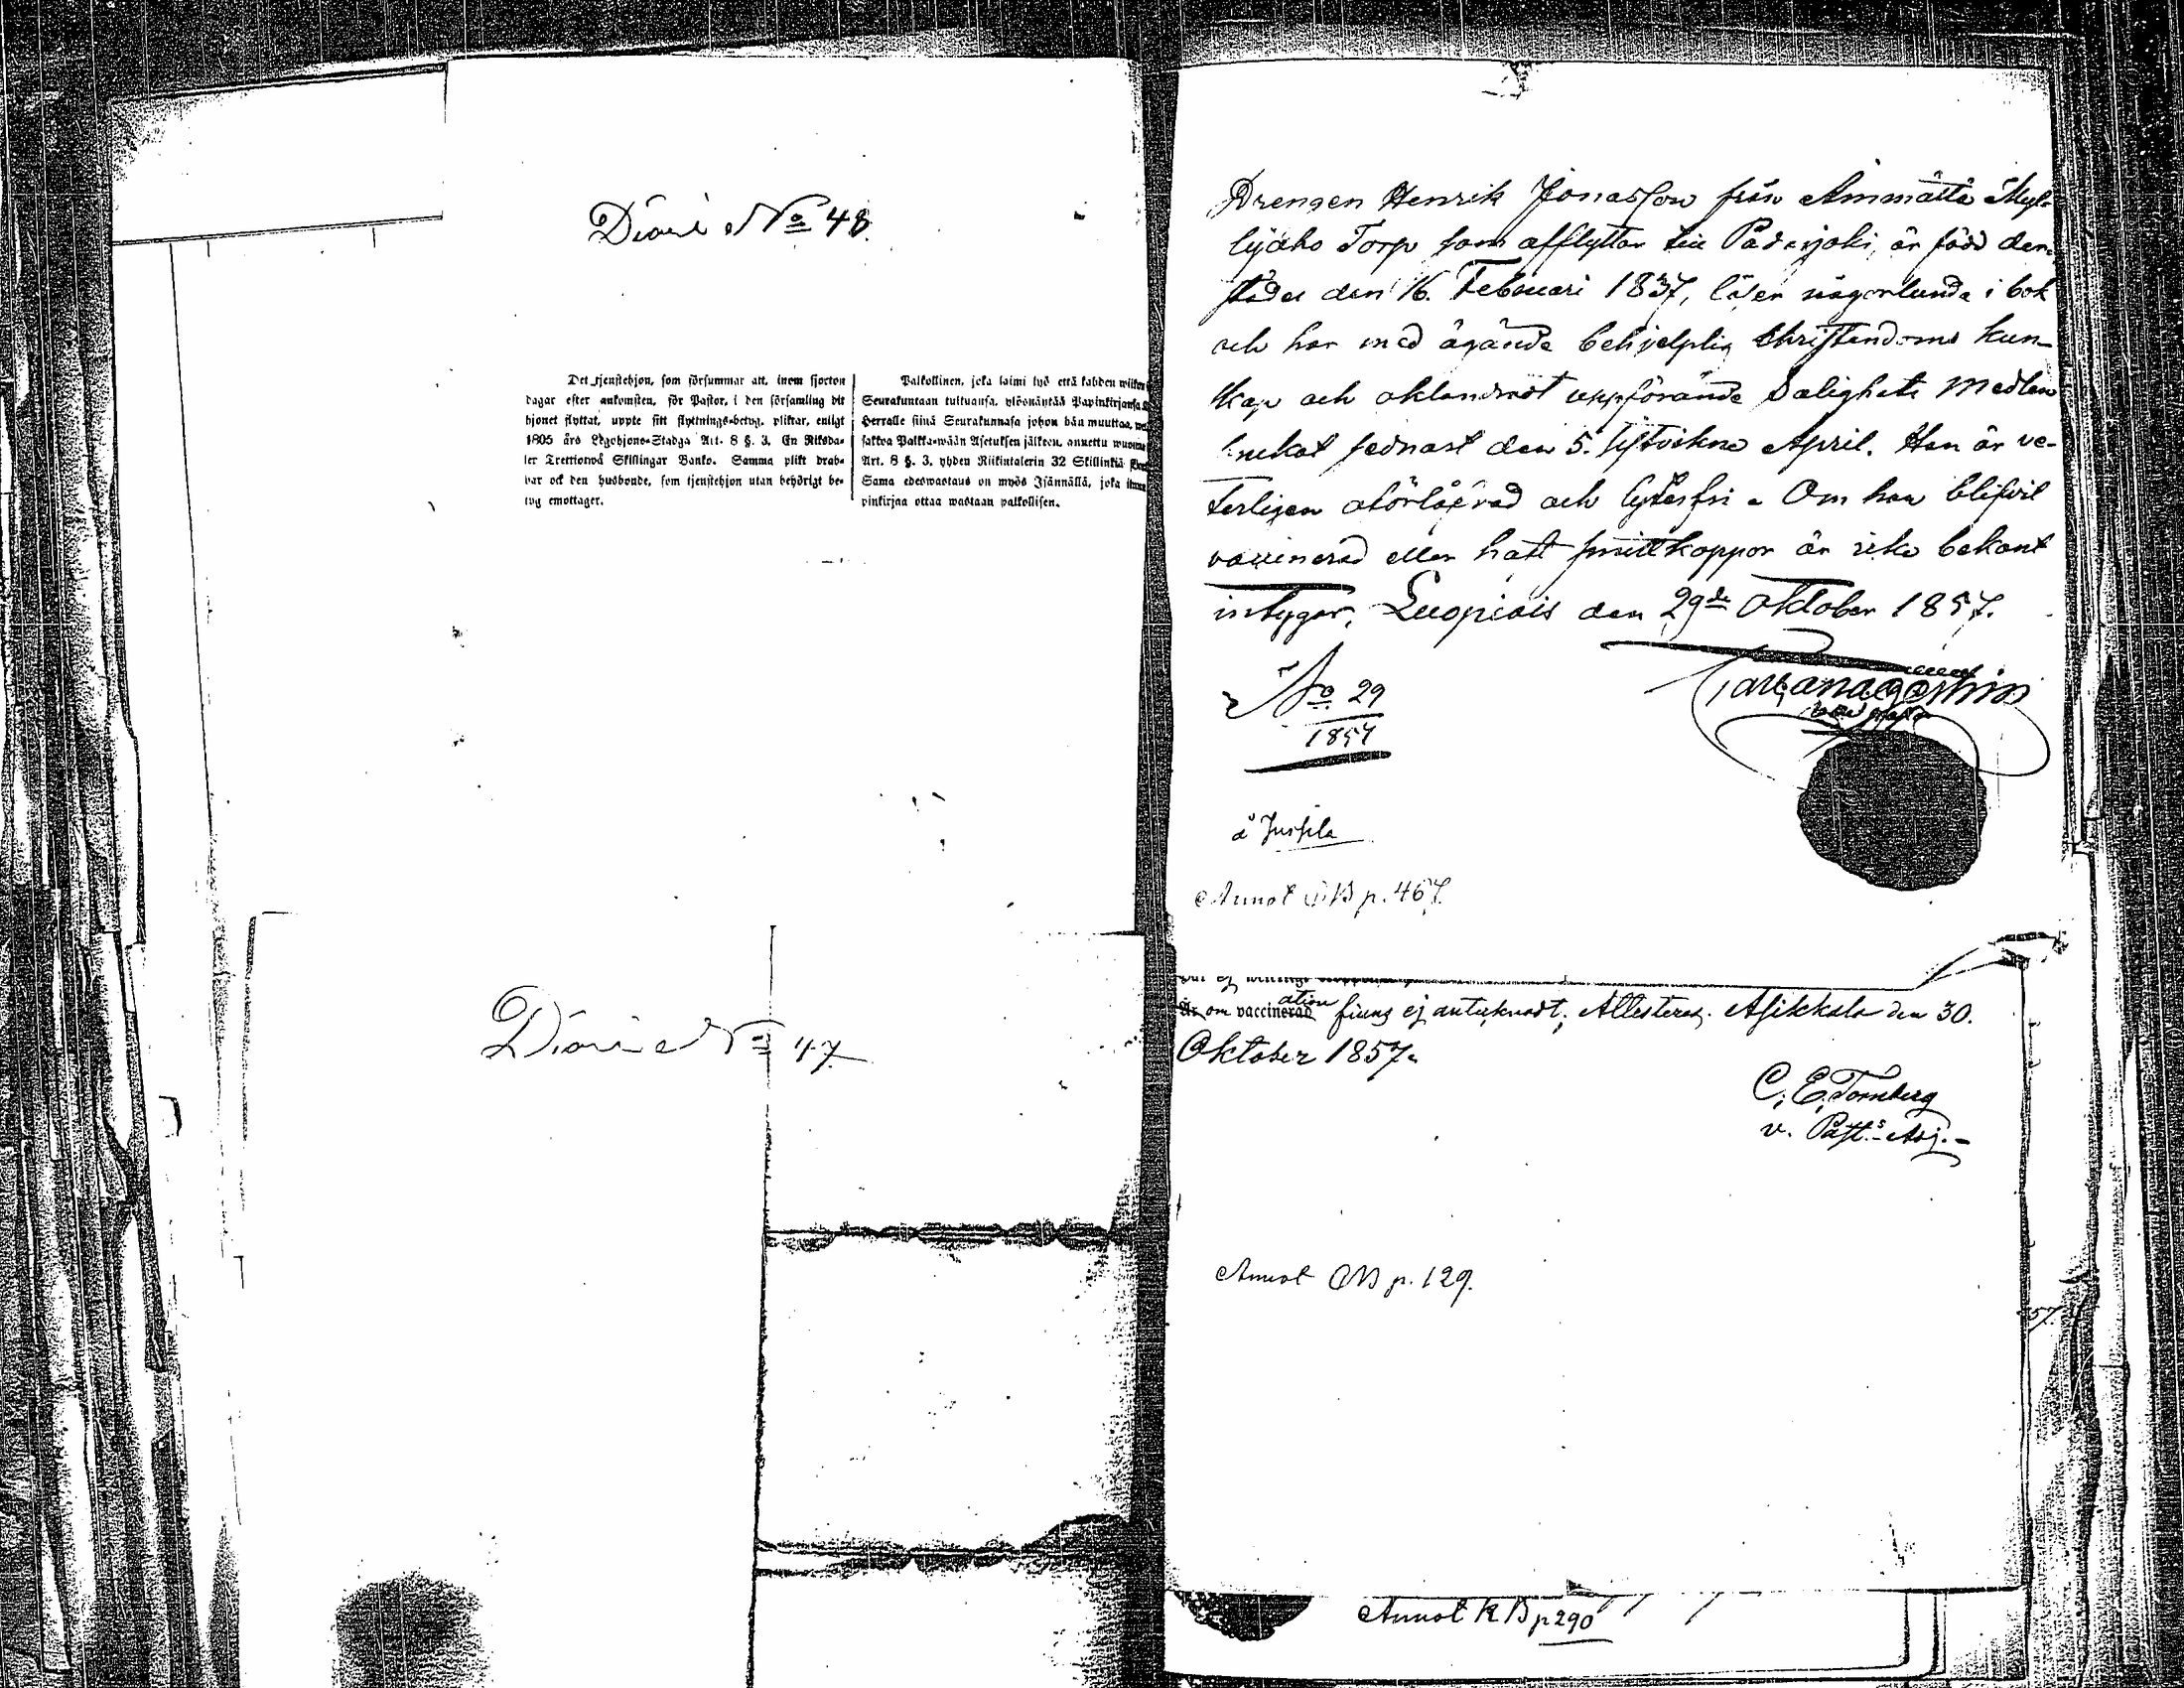 Diarie No 48.
Det tjenstehjon, som försummar att, inom fjorton
dagar efter ankomsten, för Pastor, i den församling dit
hjonet flyttat, uppte sitt flyttnings-betyg, pliktar, enligt
1805 års Legohjons-Stadga Art. 8 §. 3. En Riksda-
ler Trettiotwå Skillingar Banko. Samma plikt drab-
bar ock den husbonde, som tjenstehjon utan behörigt be-
tyg emottager.
Palkollinen, joka laimi lyö että kahden wiikon
Seurakuntaan tultuansa, ylösnäytää Papinkirjansa
Herralle siinä Seurakunnasa johon hän muuttaa,
sakkoa Palkka-wään Asetuksen jälkeen, annettu wuonna
Art. 8 §. 3. yhden Riikintalerin 32 Skillinkiä
Sama edeswastaus on myös Isännällä, joka ilman
pinkirjaa ottaa wastaan palkollisen.
Diarie No 47
Drengen Henrik Jonasson från Ämmättä Myl-
lyaho Torp som afflyttar till Padasjoki, är född der-
städes den 16. Februari 1837, läser någorlunda i bok
och har med ägande behjelplig Christendoms kun-
skap och oklandradt uppförande Salighets Medlen
brukat sednast den 5. April. Han är ve-
terligen oförlofvad och lytesfri. Om han blifvit
vaccinerad eller haft smittkoppor är icke bekant
intygar, Luopiois den 29de Oktober 1857.
No 29
1857
å Jussila
Annot p. 467.
Är om vaccinerad ation finns ej antecknadt; Attesteras. Asikkala den 30.
Oktober 1857.
C. E. Tornberg
v. Past:s Adj.
Annot p. 129.
Annot K B p 290